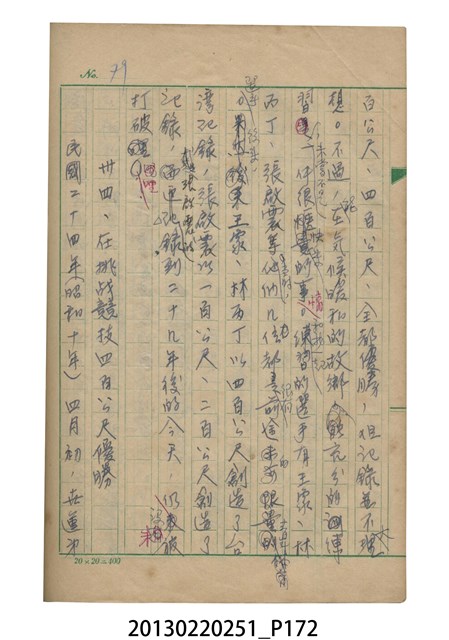 No. 79
百公尺、四百公尺、全都優勝，但記錄並不理
想。不過，在氣候暖和的故鄉，能充分的訓練
習，一件很愜意的事。練習的選手有王家、林
丙丁、張啟震等他們几位都是前途
王家、林丙丁以四百公尺創造了台
灣記錄，張啟震以一百公尺、二百公尺創造了
記錄，而這記錄到二十九年後的今天，仍未被
打破
卅四、在挑战競技四百公尺優勝
民國二十四年(昭和十年)四月初，世運第
20×20=400
20130220251_P172